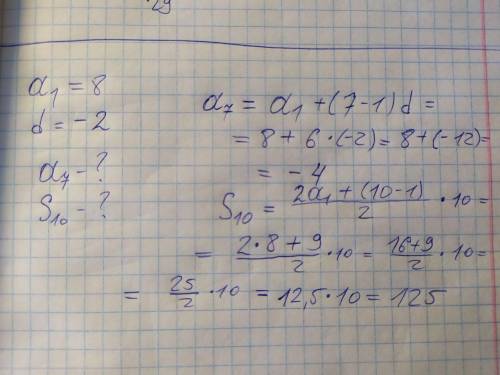 29
a₁ = 8
d = -2
a₇ - ?
S₁₀ - ?
a₇ = a₁ + (7-1)d =
= 8 + 6·(-2) = 8 + (-12) =
= -4
S₁₀ = (2a₁ + (10-1))/2 · 10 =
= (2·8 + 9)/2 · 10 = (16+9)/2 · 10 =
= 25/2 · 10 = 12,5 · 10 = 125